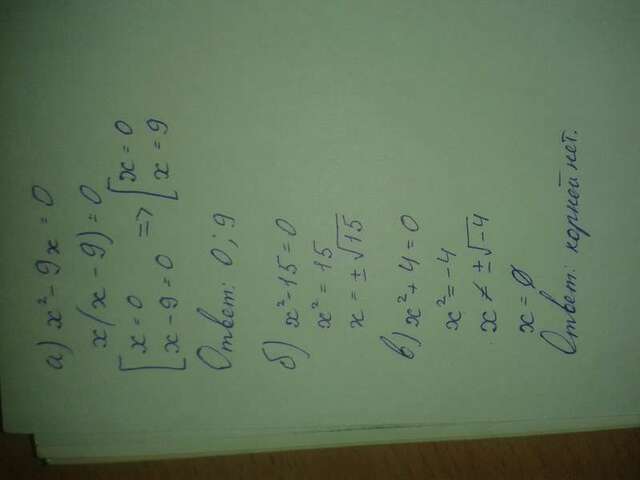 а) x² - 9x = 0
x(x - 9) = 0
[x = 0
[x - 9 = 0 => [x = 0
[x = 9
Ответ: 0; 9
б) x² - 15 = 0
x² = 15
x = ±√15
в) x² + 4 = 0
x² = -4
x ≠ ±√-4
x = ∅
Ответ: корней нет.